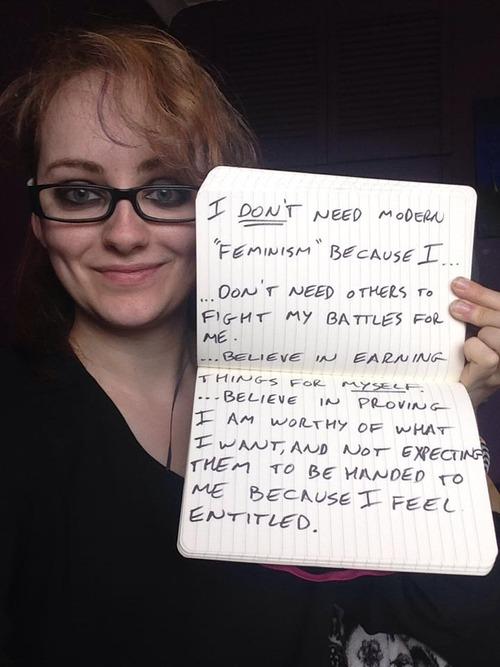 I DON'T NEED MODERN
"FEMINISM" BECAUSE I...
...DON'T NEED OTHERS TO
FIGHT MY BATTLES FOR
ME.
...BELIEVE IN EARNING
THINGS FOR MYSELF.
...BELIEVE IN PROVING
I AM WORTHY OF WHAT
I WANT, AND NOT EXPECTING
THEM TO BE HANDED TO
ME BECAUSE I FEEL
ENTITLED.